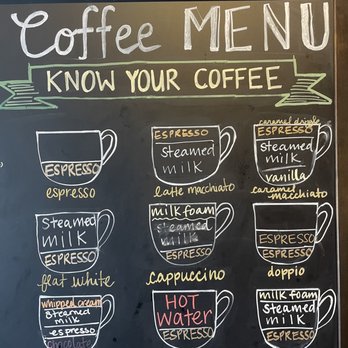 Coffee MENU
KNOW YOUR COFFEE
ESPRESSO
espresso
ESPRESSO
Steamed
milk
latte macchiato
caramel drizzle
ESPRESSO
Steamed
milk
vanilla
caramel
macchiato
Steamed
milk
ESPRESSO
flat white
milk foam
steamed
milk
ESPRESSO
cappuccino
ESPRESSO
ESPRESSO
doppio
whipped cream
Steamed
milk
espresso
chocolate
HOT
water
ESPRESSO
milk foam
Steamed
milk
ESPRESSO